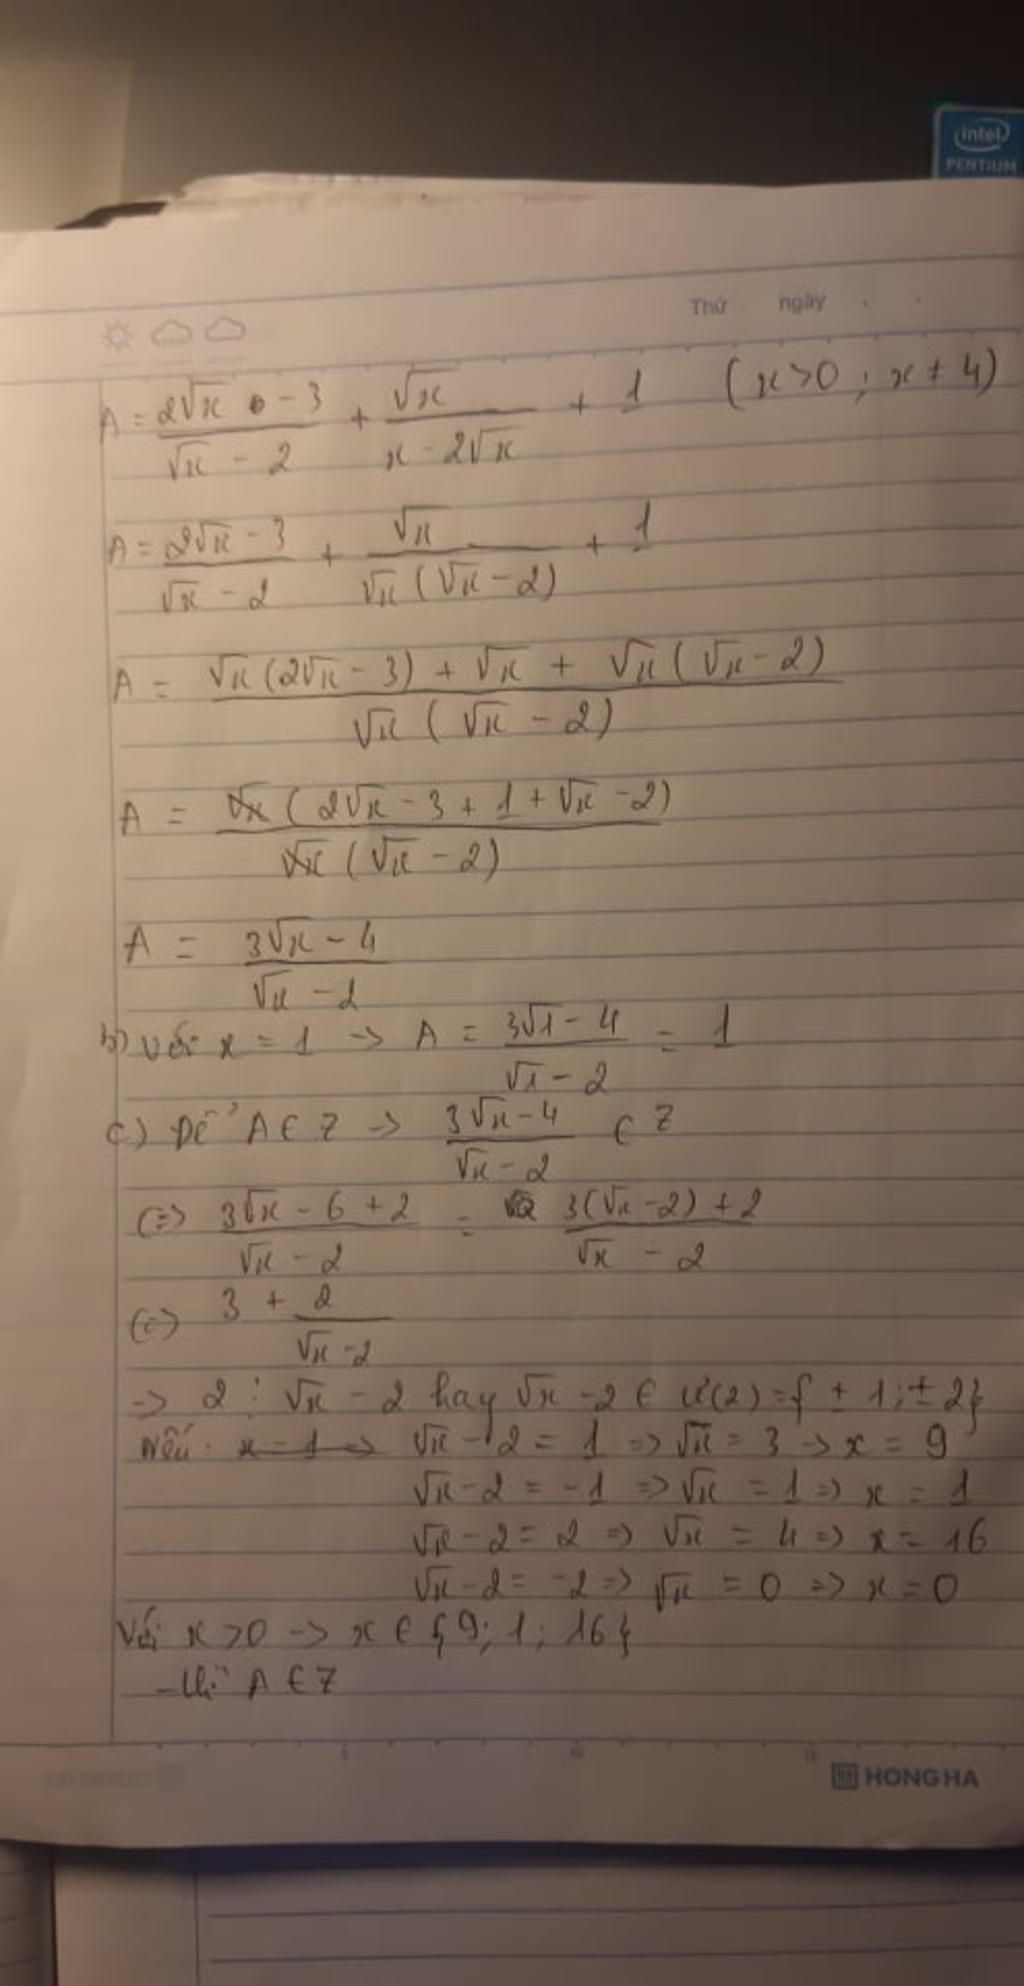 intel
PENTIUM
Thứ ngày
A = (2√x - 3)/(√x - 2) + √x/(x - 2√x) + 1 (x > 0 ; x ≠ 4)
A = (2√x - 3)/(√x - 2) + √x/(√x (√x - 2)) + 1
A = (√x (2√x - 3) + √x + √x (√x - 2))/(√x (√x - 2))
A = (√x (2√x - 3 + 1 + √x - 2))/(√x (√x - 2))
A = (3√x - 4)/(√x - 2)
b) Với x = 1 -> A = (3√1 - 4)/(√1 - 2) = 1
c) Để A ∈ Z -> (3√x - 4)/(√x - 2) ∈ Z
(=> (3√x - 6 + 2)/(√x - 2) = (3(√x - 2) + 2)/(√x - 2)
(=> 3 + 2/(√x - 2)
-> 2 ⋮ √x - 2 hay √x - 2 ∈ Ư(2) = { ± 1 ; ± 2}
Nếu : x = 1 => √x - 2 = 1 => √x = 3 -> x = 9
√x - 2 = -1 => √x = 1 => x = 1
√x - 2 = 2 => √x = 4 => x = 16
√x - 2 = -2 => √x = 0 => x = 0
Với x > 0 -> x ∈ {9; 1; 16}
thì A ∈ Z
HONG HA